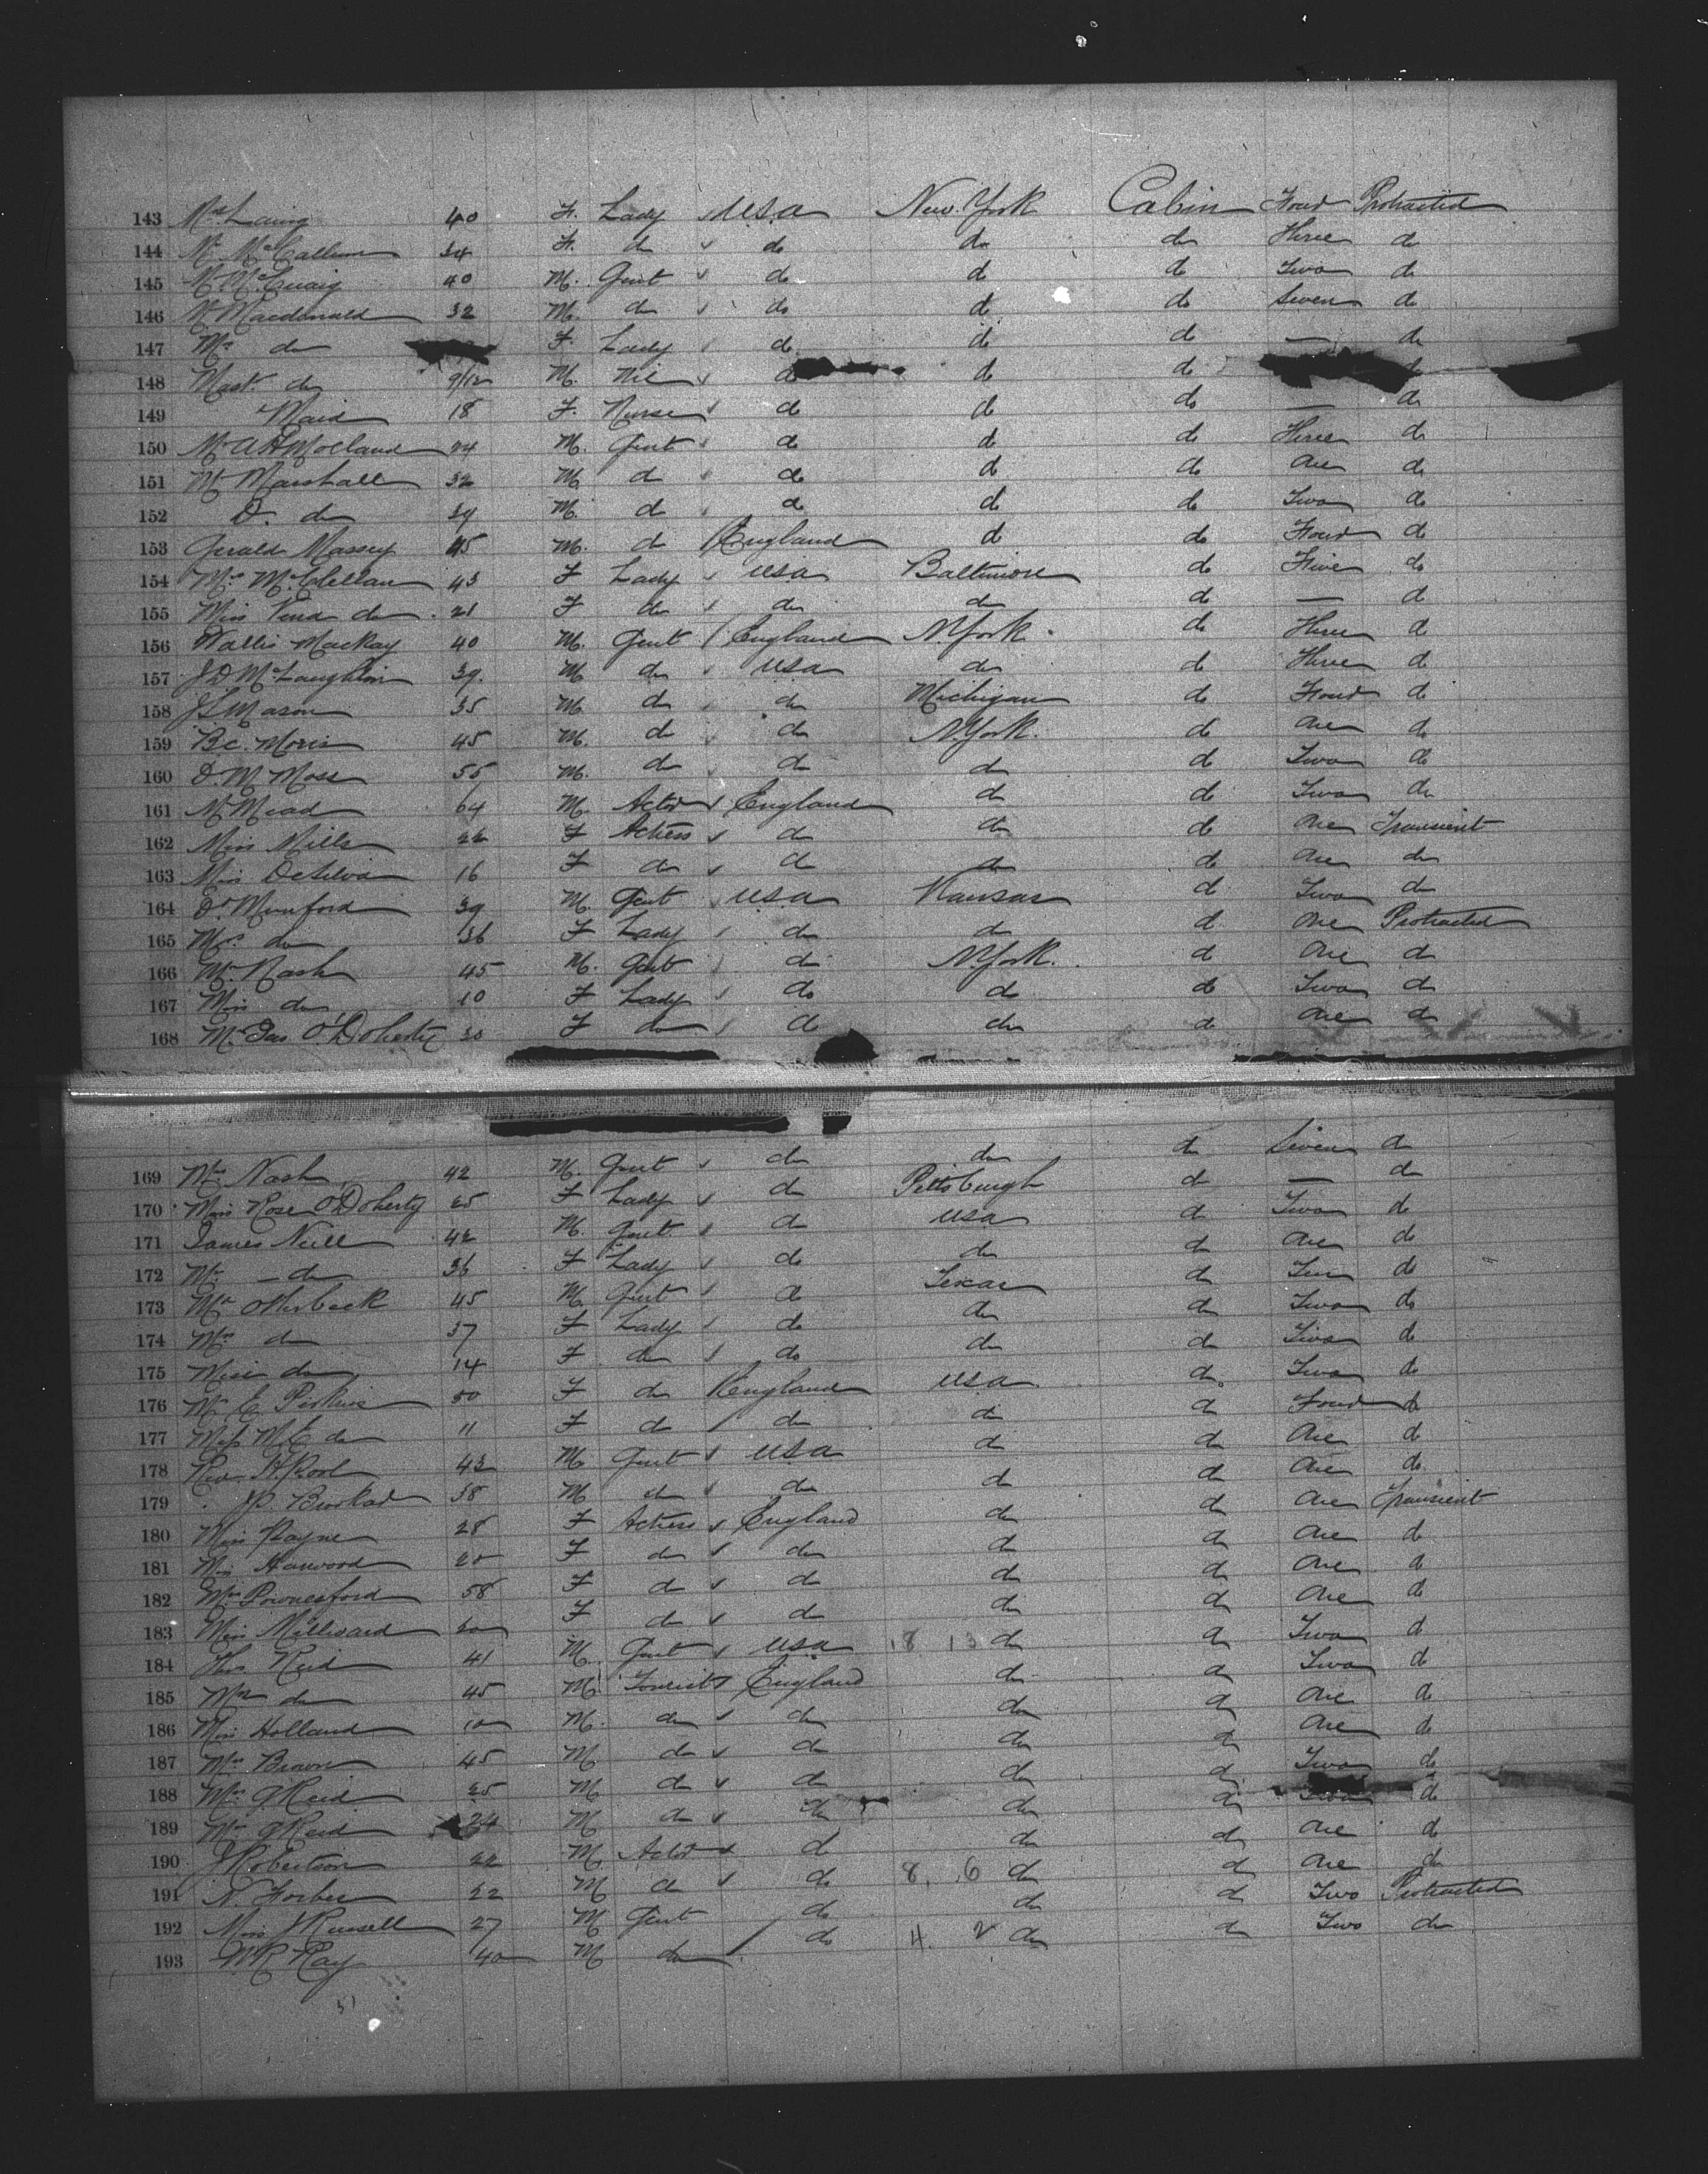 143 Mrs Laing 40 F. Lady USA New York Cabin Four Protracted
144 Mr McCallum 34 F. do do do do Three do
145 Mr McQuaig 40 M. Gent do do do Two do
146 Mr Macdonald 32 M. do do do do Seven do
147 Mrs do F. Lady do do do — do
148 Mast. do 9/12 M. Nil do do do
149 Maid 18 F. Nurse do do do — do
150 Mr A H Molland 24 M. Gent do do do Three do
151 Mr Marshall 32 M. do do do do One do
152 D. do 39 M. do do do do Two do
153 Gerald Massey 45 M. do England do do Four do
154 Mrs McClellan 43 F Lady USA Baltimore do Five do
155 Miss do 21 F do do do do — do
156 Wallis Mackay 40 M. Gent England N. York do Three do
157 J D McLaughlin 39. M do USA do do Three do
158 J L Mason 35 M. do do Michigan do Four do
159 B.C. Morris 45 M. do do N. York. do One do
160 D. M Moss 55 M. do do do do Two do
161 Mr Mead 64 M. Actor England do do Two do
162 Miss Mills 22 F Actress do do do One Transient
163 Miss DeSilva 16 F do do do do One do
164 Dr Munford 39 M. Gent USA Kansas do Two do
165 Mrs do 36 F Lady do do do One Protracted
166 Mr Nash 45 M. Gent do N. York. do One do
167 Miss do 10 F Lady do do do Two do
168 Mrs Jas O'Doherty 30 F do do do do One do
169 Mr Nash 42 M. Gent do do do Seven do
170 Miss Rose O'Doherty 25 F Lady do Pittsburgh do — do
171 James Neill 42 M. Gent. do USA do Two do
172 Mrs — do 36 F Lady do do do One do
173 Mr Otterbeck 45 M. Gent do Texas do do
174 Mrs do 37 F Lady do do do Two do
175 Miss do 14 F do do do do Two do
176 Mrs E Perkins 50 F do England USA do Two do
177 Miss M E do 11 F do do do do Four do
178 Rev H Pool 43 M Gent USA do do One do
179 J P 38 M do do do do One do
180 Miss Payne 28 F Actress England do do One Transient
181 Miss Harwood 20 F do do do do One do
182 Mrs Pownesford 58 F do do do do One do
183 Miss Millward 20 F do do do do One do
184 Thos Reid 41 M. Gent USA 18 13 do do Two do
185 Mrs do 45 M Tourist England do do Two do
186 Miss Holland 10 M. do do do do One do
187 Mrs Brown 45 M do do do do One do
188 Mr G Reid 25 M do do do do Two do
189 Mr Reid 24 M do do do do Two do
190 J Robertson 22 M. Actor do do do One do
191 N. Forbes 22 M do do 8. 6 do do One do
192 Miss J Russell 27 M Gent do do do Two Protracted
193 W R Ray 40 M do do 4. 2 do do Two do